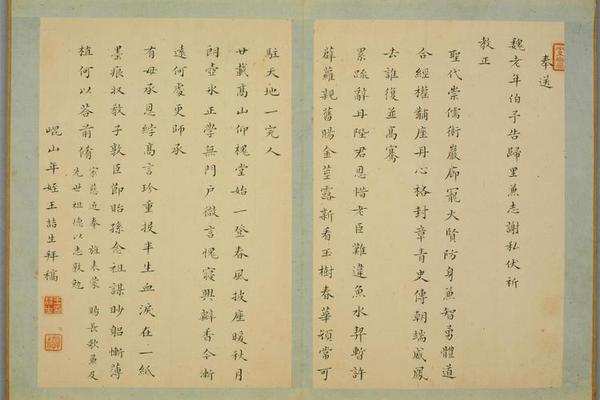 奉送
魏老年伯予告歸里兼志謝私伏祈
教正
聖代崇儒術巖廊寵大賢防身兼智勇體道
合經權黼座丹心格封章青史傳朝端威鳳
去誰復並高騫
累疏辭丹陛君恩惜老臣難違魚水契暫許
薜蘿親舊賜金莖露新看玉樹春華顛常可
駐天地一完人
廿載高山仰槐堂始一登春風披座暖秋月
朗壺冰正學無門戶微言愧寢興瓣香今漸
遠何處更師承
有母承恩綍高言珍重投半生血淚在一紙
墨痕收教子敦臣節貽孫念祖謀眇躬慚薄
植何以答前脩
家慈近奉旌表蒙賜長歌兼及
先世祖德以志敦勉
崐山年姪王喆生拜稿